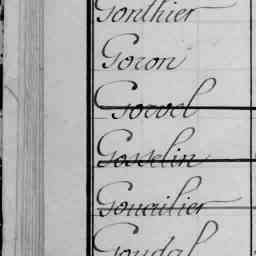 Gonthier
Goron
Gorvel
Gosselin
Gouailier
Goudal